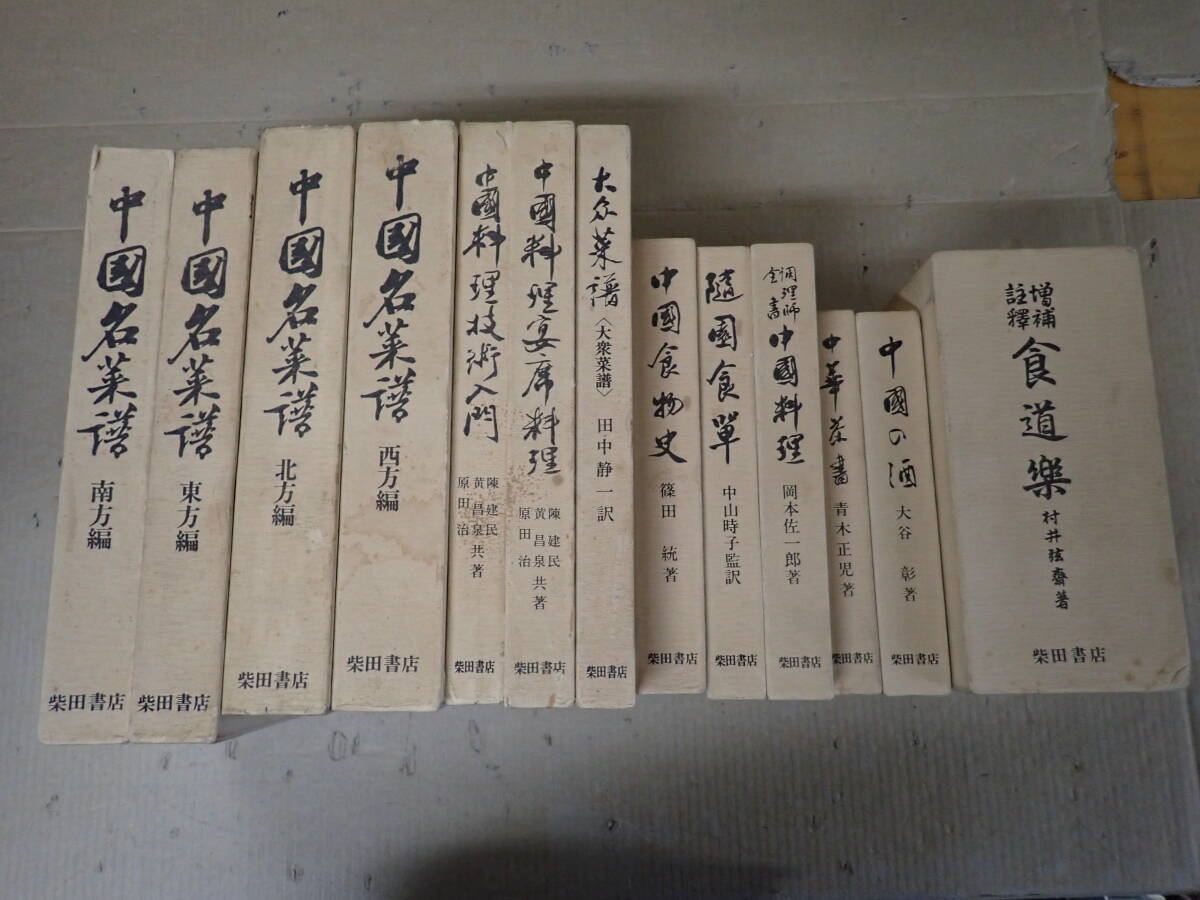 中國名菜譜
南方編
柴田書店
中國名菜譜
東方編
柴田書店
中國名菜譜
北方編
柴田書店
中國名菜譜
西方編
柴田書店
中國料理技術入門
陳建民
黄昌泉共著
原田治
柴田書店
中國料理宴席料理
陳建民
黄昌泉共著
原田治
柴田書店
大众菜譜
〈大衆菜譜〉
田中静一訳
柴田書店
中國食物史
篠田統著
柴田書店
隨園食單
中山時子監訳
柴田書店
調理師
全書
中國料理
岡本佐一郎著
柴田書店
中華茶書
青木正児著
柴田書店
中國の酒
大谷彰著
柴田書店
増補
註釋
食道樂
村井弦齋著
柴田書店